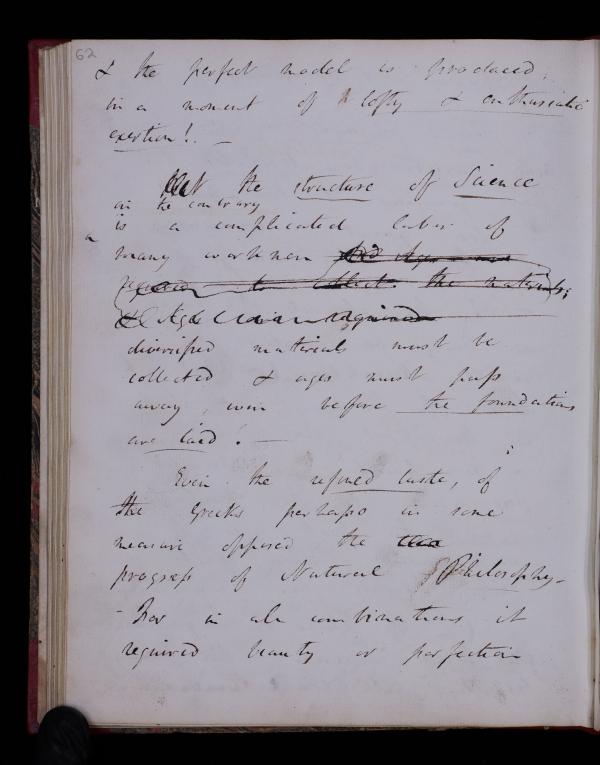 62
& the perfect model is produced,
in a moment of lofty & enthusiastic
exertion! –
But the structure of Science
on the contrary
is a complicated labor of
many workmen and Ages are
required to collect the materials;
& Ages even required
diversified materials must be
collected & ages must pass
away, even before the foundations
are laid! –
Even the refined taste, of
the Greeks perhaps in some
measure opposed the
progress of Natural Philosophy –
– For in all combinations it
required beauty or perfection